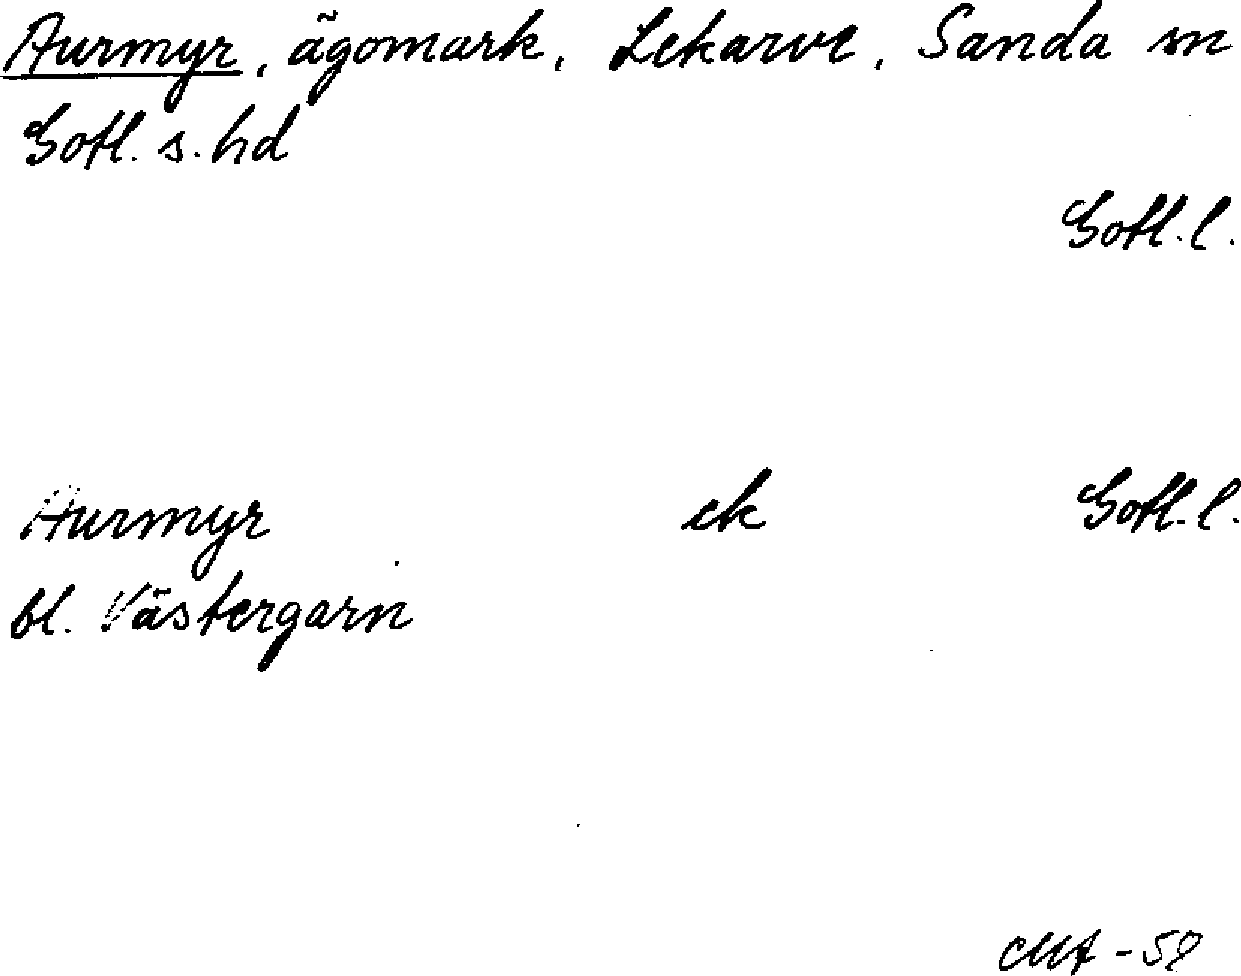 Aurmyr, ägomark, Lekarve, Sanda sn
Gotl. s. hd
Gotl. l.
Aurmyr ek Gotl. l.
bl. Västergarn